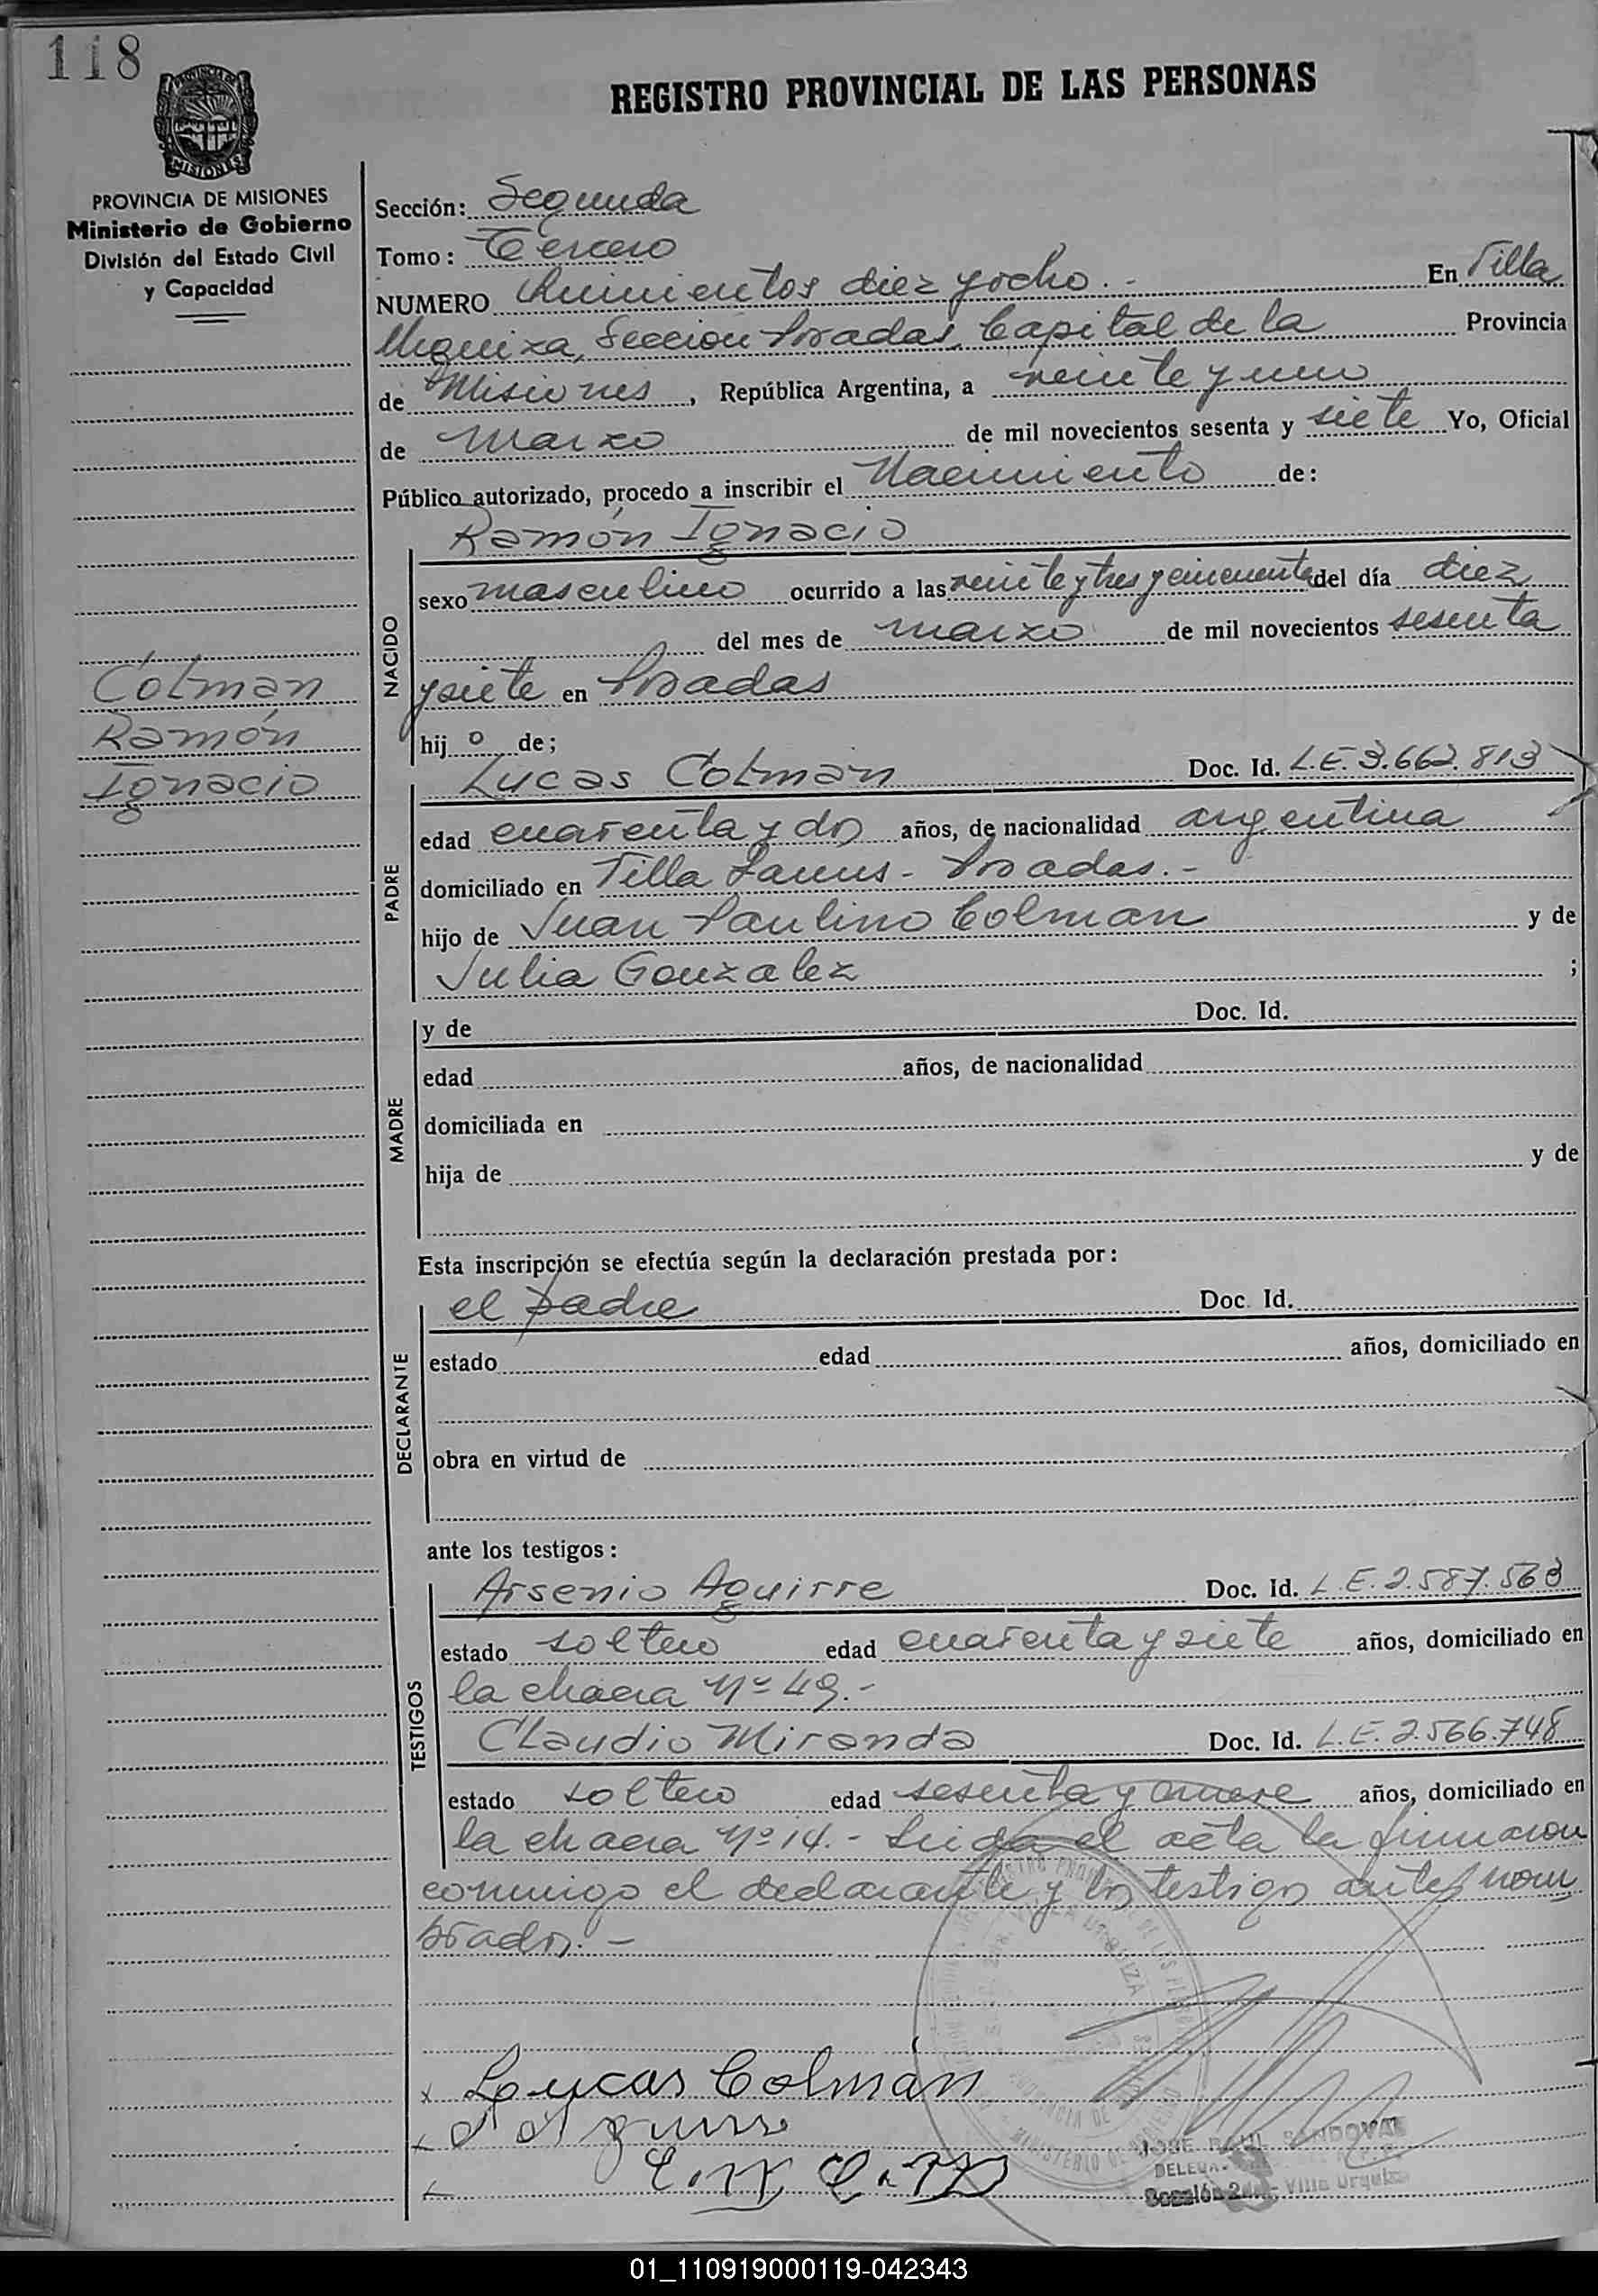 118
REGISTRO PROVINCIAL DE LAS PERSONAS
MISIONES
PROVINCIA DE MISIONES
Ministerio de Gobierno
División del Estado Civil
y Capacidad
Sección: Segunda
Tomo: Tercero
NUMERO Quinientos diez y ocho.- En Villa
Urquiza, Sección Posadas, Capital de la Provincia
de Misiones, República Argentina, a veinte y uno
de Marzo de mil novecientos sesenta y siete Yo, Oficial
Público autorizado, procedo a inscribir el Nacimiento de:
Colman
Ramón
Ignacio
NACIDO
Ramón Ignacio
sexo masculino ocurrido a las veinte y tres y cincuenta del día diez
del mes de marzo de mil novecientos sesenta
y siete en Posadas
hijo de;
PADRE
Lucas Colman Doc. Id. L.E. 3.662.813
edad cuarenta y dos años, de nacionalidad argentina
domiciliado en Villa Lanus - Posadas.-
hijo de Juan Paulino Colman y de
Julia Gonzalez ;
MADRE
y de Doc. Id.
edad años, de nacionalidad
domiciliada en
hija de y de
Esta inscripción se efectúa según la declaración prestada por:
DECLARANTE
el padre Doc. Id.
estado edad años, domiciliado en
obra en virtud de
ante los testigos:
TESTIGOS
Arsenio Aguirre Doc. Id. L.E. 2.587.563
estado soltero edad cuarenta y siete años, domiciliado en
la chacra Nº 49.-
Claudio Miranda Doc. Id. L.E. 2.566.748
estado soltero edad sesenta y nueve años, domiciliado en
la chacra Nº 14.- Leida el acta la firmaron
conmigo el declarante y los testigos antes nom
brados.-
x Loucas Colmán
JOSE RAUL SANDOVAL
DELEGA
Sección 2da - Villa Urquiza
01_110919000119-042343